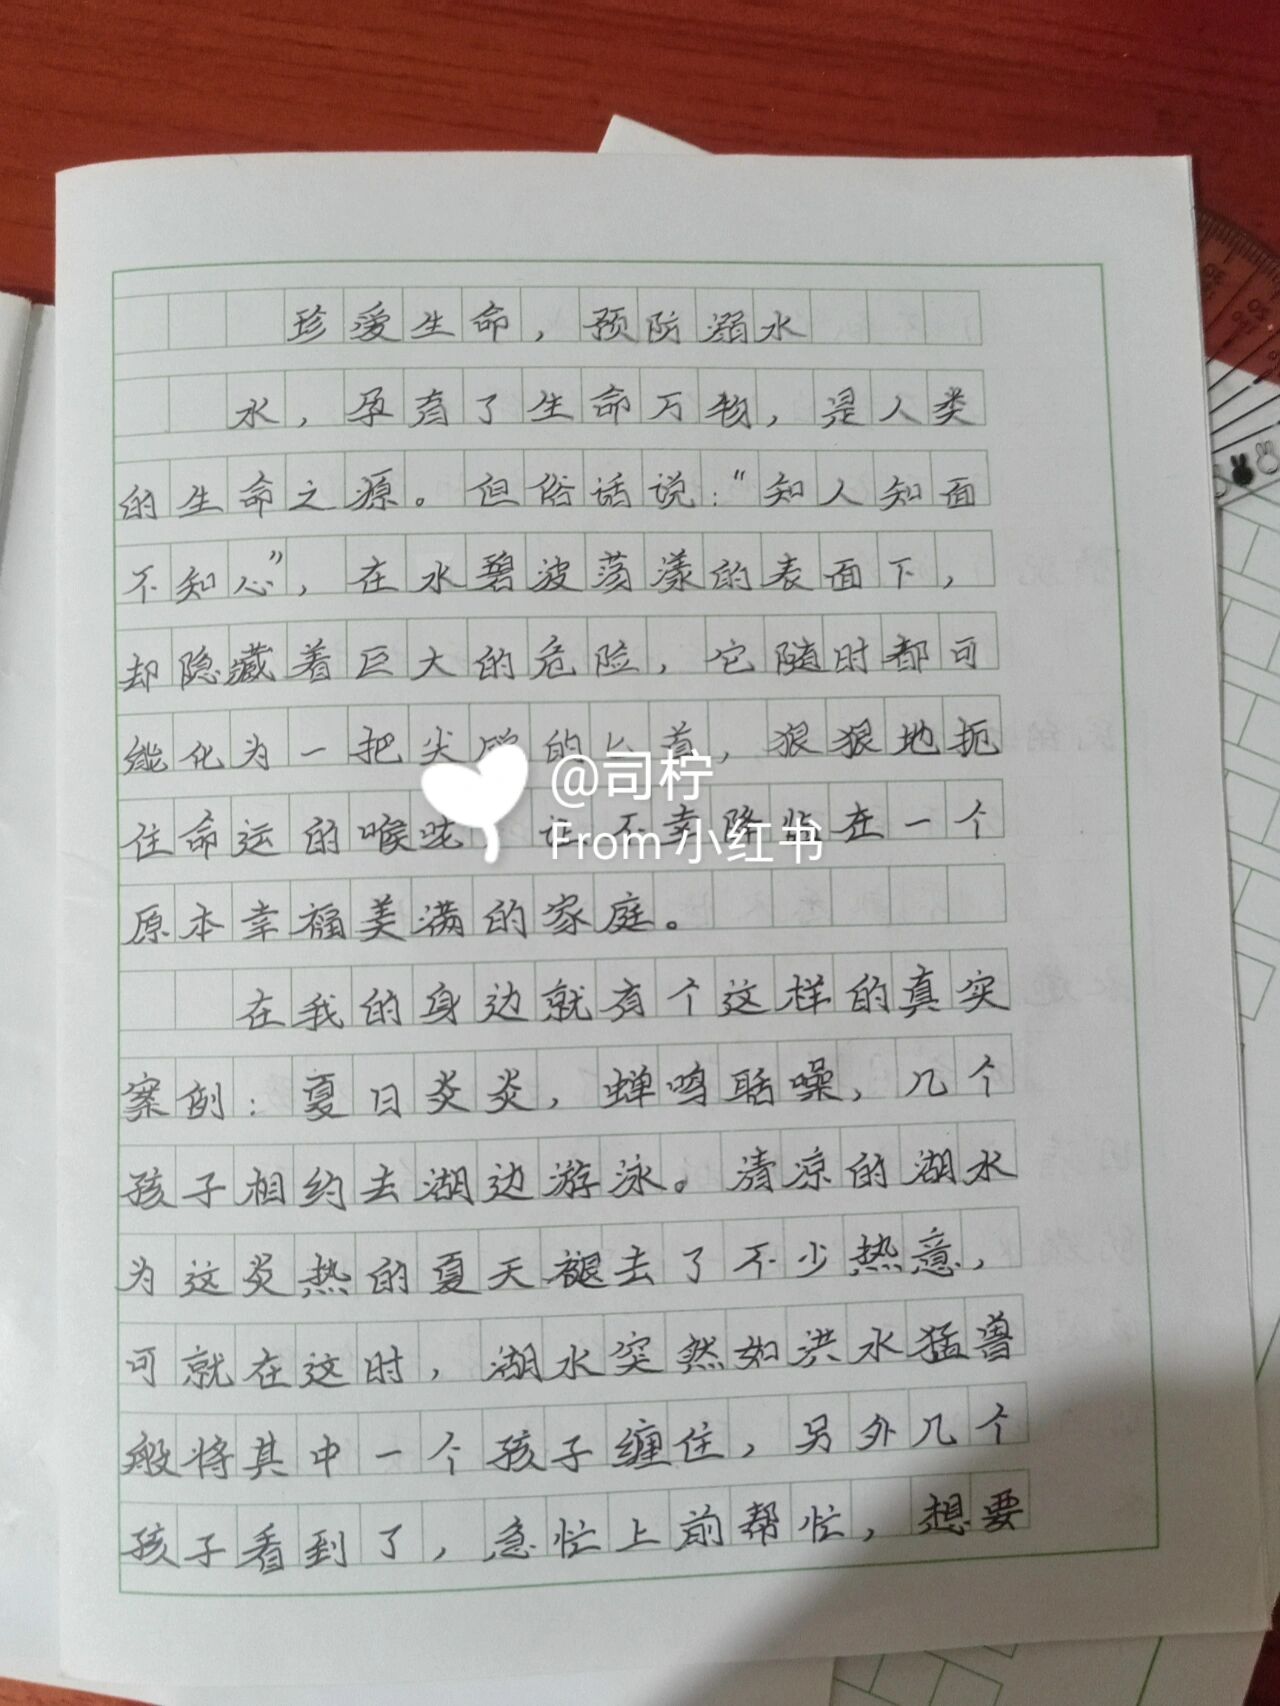 珍爱生命，预防溺水
水，孕育了生命万物，是人类
的生命之源。但俗话说：“知人知面
不知心”，在水碧波荡漾的表面下，
却隐藏着巨大的危险，它随时都可
能化为一把尖的，狠狠地扼
住命运的喉咙，让不幸降临在一个
原本幸福美满的家庭。
在我的身边就有个这样的真实
案例：夏日炎炎，蝉鸣聒噪，几个
孩子相约去湖边游泳。清凉的湖水
为这炎热的夏天褪去了不少热意，
可就在这时，湖水突然如洪水猛兽
般将其中一个孩子缠住，另外几个
孩子看到了，急忙上前帮忙，想要
@司柠
From 小红书